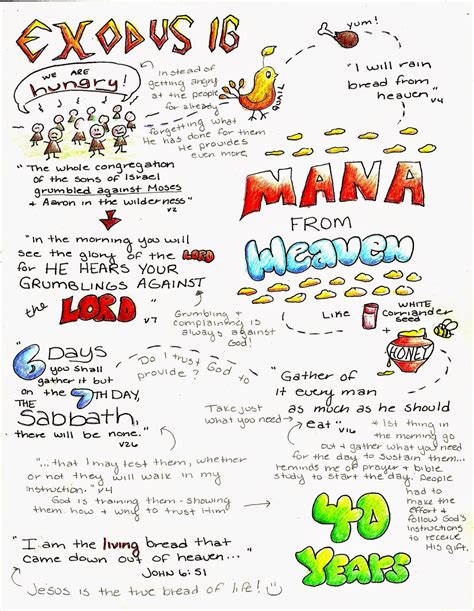 EXODUS 16
WE ARE
hungry!
Instead of
getting angry
at the people
for already
forgetting what
He has done for them
He provides
even more
QUAIL
yum!
"I will rain
bread from
heaven" v4
"The whole congregation
of the sons of Israel
grumbled against Moses
+ Aaron in the wilderness"
v2
MANA
FROM
Heaven
"In the morning you will
see the glory of the LORD
for HE HEARS YOUR
GRUMBLINGS AGAINST
the LORD"
v7
Grumbling +
complaining is
always against
God!
LIKE
WHITE
CORRIANDER
SEED
HONEY
6 DAYS
you shall
gather it but
on the 7TH DAY,
THE
Sabbath,
there will be none."
v26
Do I trust God to
provide?
"Gather of
it every man
as much as he should
eat" v16
Take just
what you need
* 1st thing in
the morning go
out + gather what you need
for the day to sustain them...
reminds me of prayer + bible
study to start the day. People
had to
make the
effort +
follow God's
instructions
to receive
His gift.
"...that I may test them, whether
or not they will walk in my
instruction." v4
God is training them - showing
them how + why to trust Him
40
YEARS
"I am the living bread that
came down out of heaven..."
JOHN 6:51
Jesus is the true bread of life!